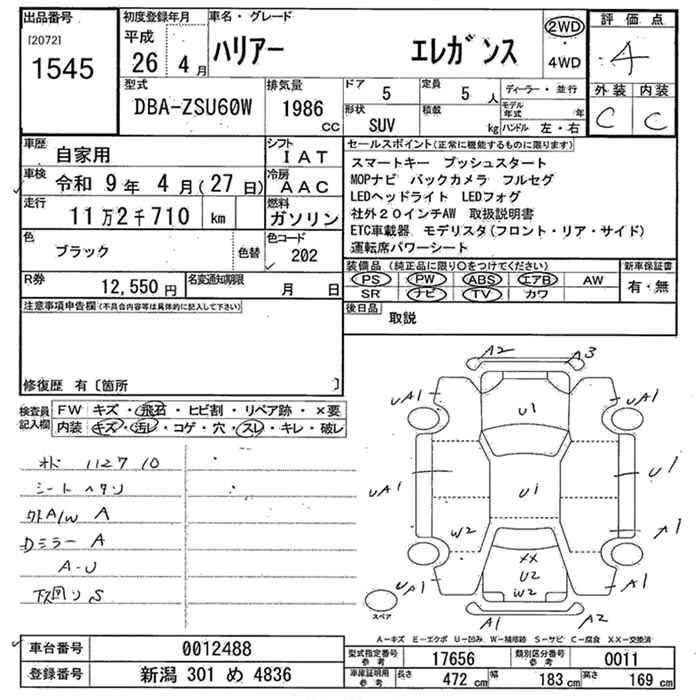 出品番号
[2072]
1545
初度登録年月
平成
26年 4月
車名・グレード
ハリアー エレガンス
2WD
・
4WD
評価点
4
外装 内装
C C
型式
DBA-ZSU60W
排気量
1986
CC
ドア
5
定員
5人
形状
SUV
積載
kg
ディーラー・並行
モデル年式 年
ハンドル 左・右
車歴
自家用
シフト
IAT
車検
令和 9年 4月(27日)
冷房
AAC
走行
11万2千710 km
燃料
ガソリン
色
ブラック
色替
色コード
202
R券
12,550円
名変通知期限
月 日
セールスポイント(正常に機能するものに限ります)
スマートキー プッシュスタート
MOPナビ バックカメラ フルセグ
LEDヘッドライト LEDフォグ
社外20インチAW 取扱説明書
ETC車載器 モデリスタ(フロント・リア・サイド)
運転席パワーシート
装備品(純正品に限り○をつけてください)
PS PW ABS エアB AW
SR ナビ TV カワ
新車保証書
有・無
後日品
取説
注意事項申告欄(不具合内容等は具体的に記入して下さい)
修復歴 有〔箇所 〕
検査員記入欄
FW キズ・飛石・ヒビ割・リペア跡・×要
内装 キズ・汚レ・コゲ・穴・スレ・キレ・破レ
オド 112710
シート ヘタリ
外A/W A
Dミラー A
A-U
下回り S
A2 A3
UA1 U1 UA1
UA1 U1 U1
W2 A1
XX
U2
W2
UA1 A1
A1 A2
スペア
A-キズ E-エクボ U-凹み W-補修跡 S-サビ C-腐食 XX-交換済
車台番号
0012488
登録番号
新潟 301 め 4836
型式指定番号
参考
17656
類別区分番号
参考
0011
車庫証明用
参考
長さ 472 cm 幅 183 cm 高さ 169 cm